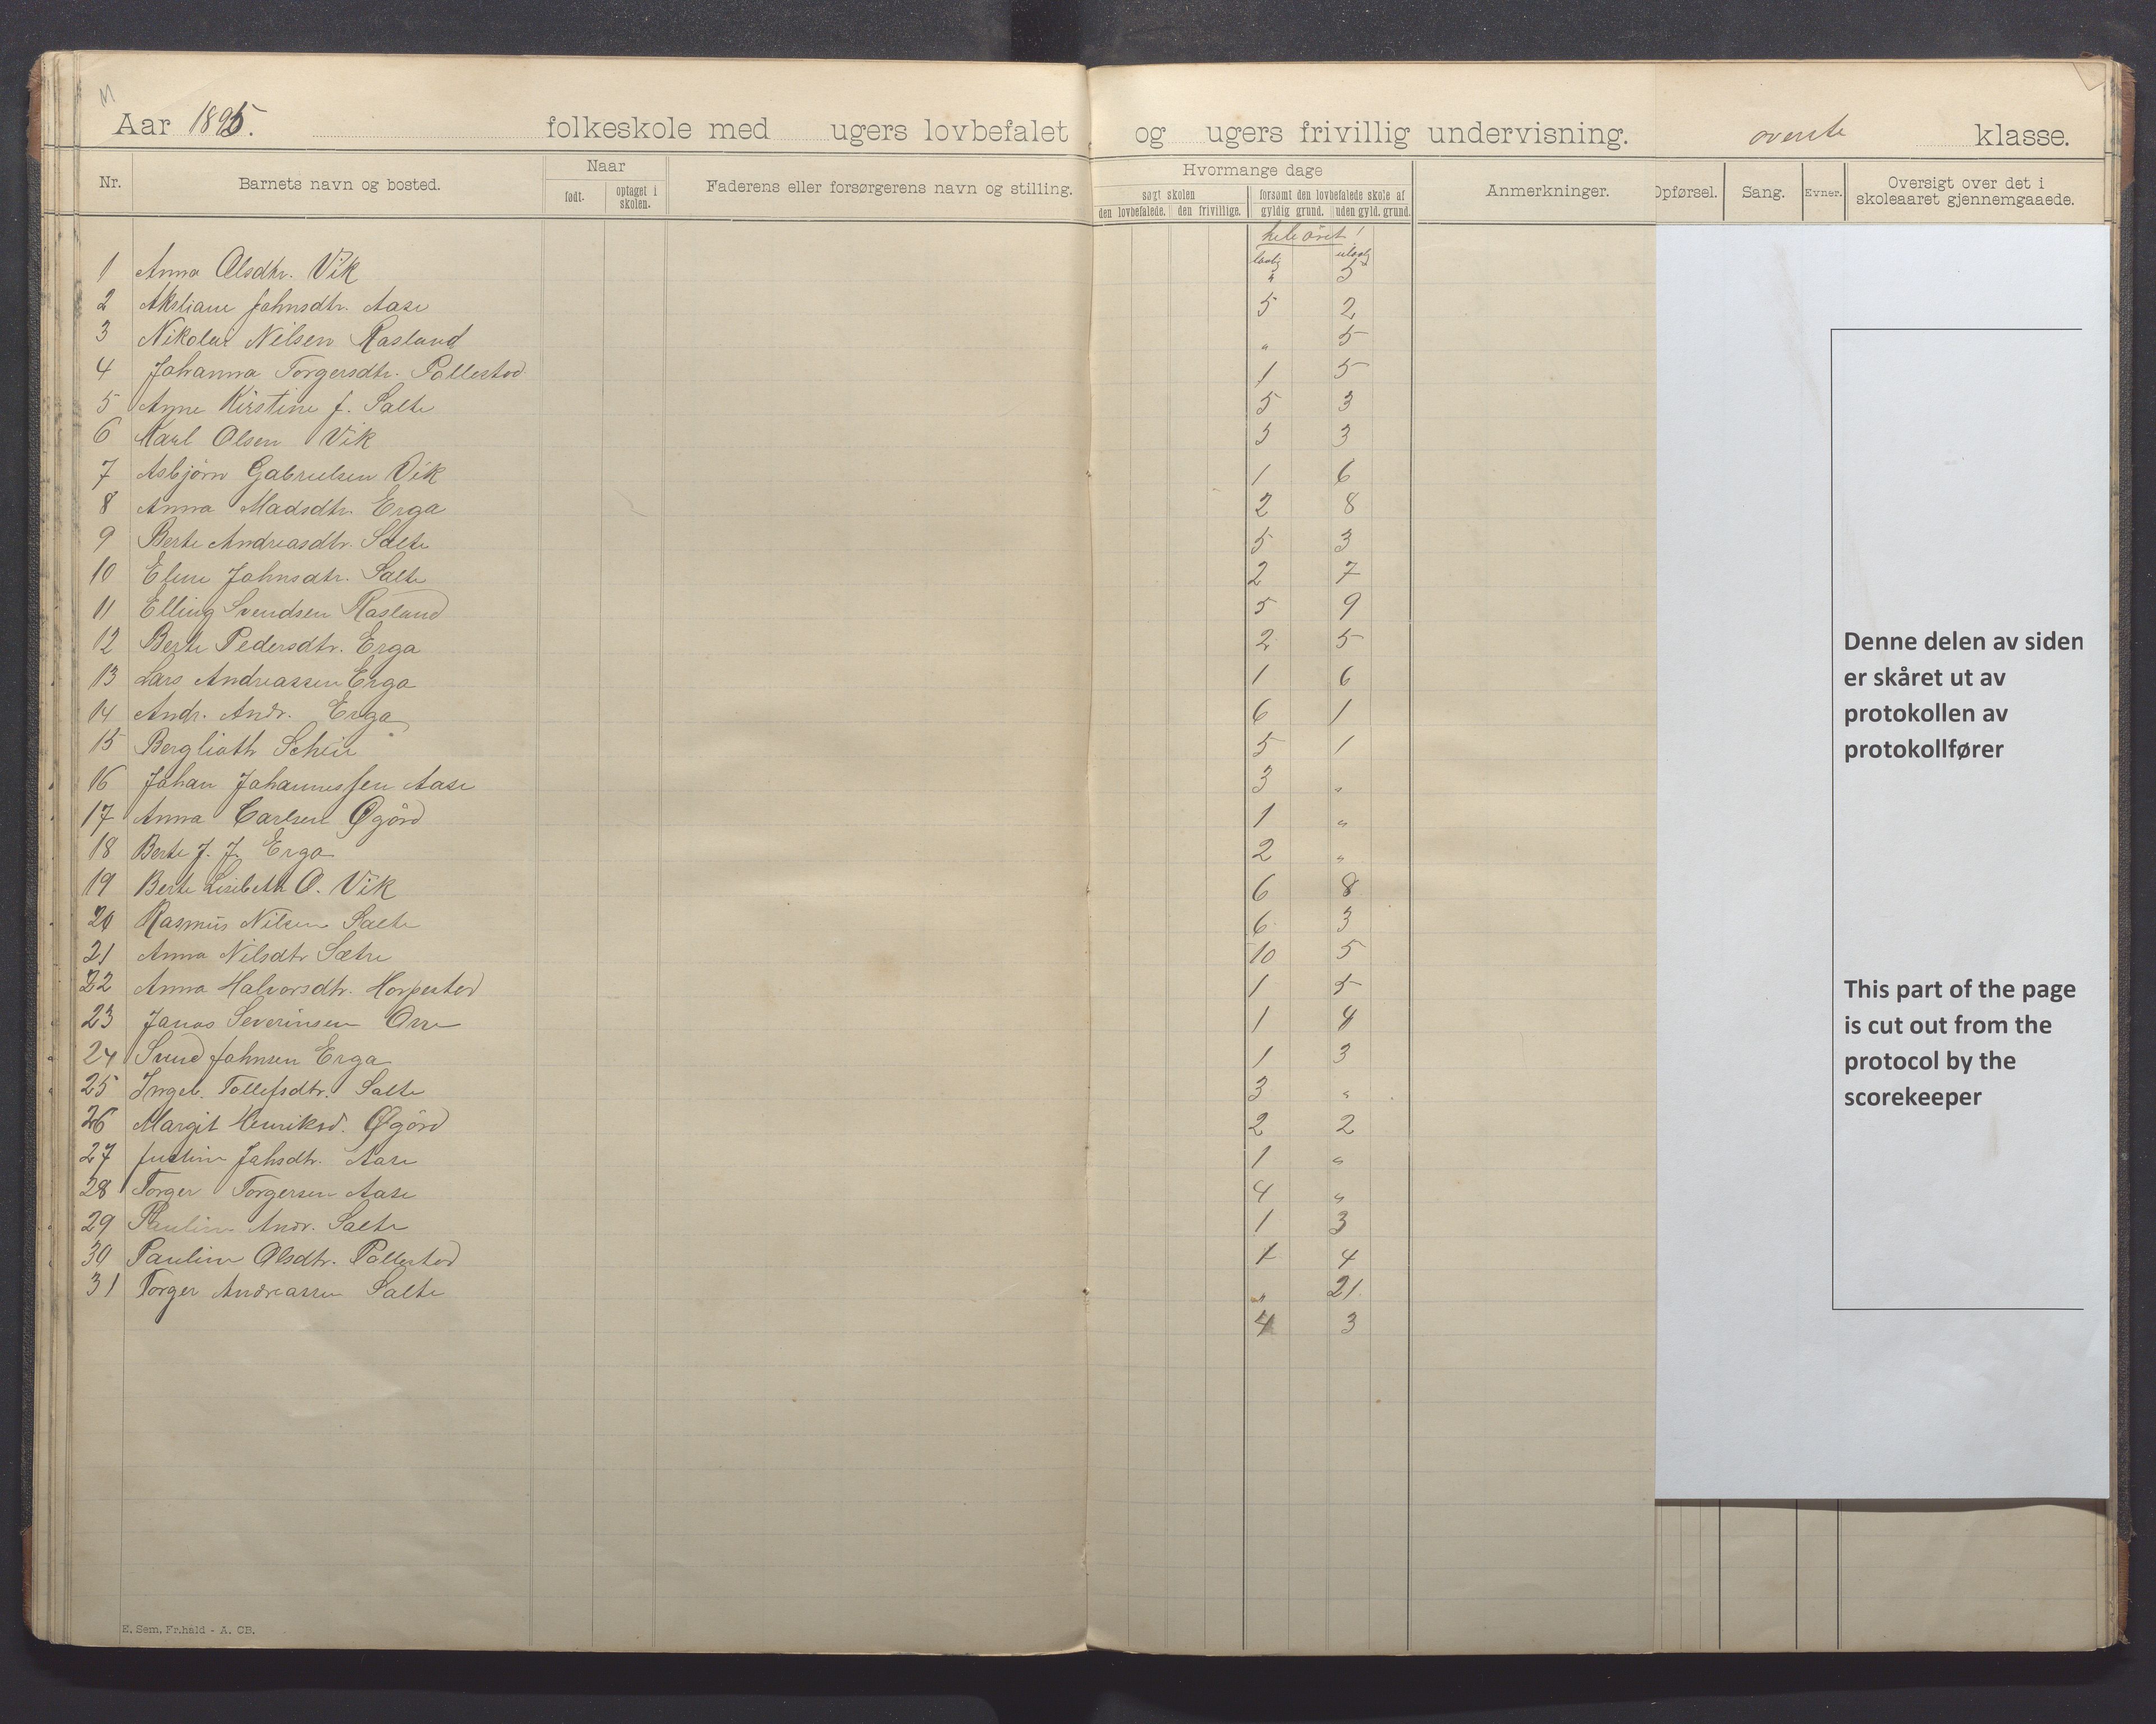 Aar 1895. folkeskole med ugers lovbefalet og ugers frivillig undervisning. øverste klasse.
Nr. Barnets navn og bosted. Naar Faderens eller forsørgerens navn og stilling. Hvormange dage Anmerkninger. Opførsel. Sang. Evner. Oversigt over det i skoleaaret gjennemgaaede.
født. optaget i skolen. søgt skolen forsømt den lovbefalede skole af
den lovbefalede. den frivillige. gyldig grund. uden gyld. grund.
hele året!
lovlig ulovlig
1 Anna Olsdtr. Vik " 5
2 Aksliane Johnsdtr. Aase 5 2
3 Nikolai Nilsen Rasland " 5
4 Johanna Torgersdtr. Pollestad 1 5
5 Anne Kirstine J. Salte 5 3
6 Karl Olsen Vik 3 3
7 Asbjørn Gabrielsen Vik 1 6
8 Anna Madsdtr. Erga 2 8
9 Berte Andreasdtr. Salte 5 3
10 Eline Johnsdtr. Salte 2 7
11 Elling Svendsen Rasland 5 9
12 Berte Pedersdtr. Erga 2 5
13 Lars Andreassen Erga 1 6
14 Andr. Andr. Erga 6 1
15 Berglioth Scheie 5 1
16 Johan Johannessen Aase 3 "
17 Anna Carlsen Øgård 1 "
18 Berte J. J. Erga 2 "
19 Berte Lisibeth O. Vik 6 8
20 Rasmus Nilsen Salte 6 3
21 Anna Nilsdtr Sætre 10 5
22 Anna Halvorsdtr. Horpestad 1 5
23 Jonas Severinsen Orre 1 8
24 Svend Johnsen Erga 1 3
25 Ingeb. Tollefsdtr. Salte 3 "
26 Margit Henriksd. Øgård 2 2
27 Justine Johsdtr. Aase 1 "
28 Torger Torgersen Aase 4 "
29 Pauline Andr. Salte 1 3
30 Pauline Olsdtr. Pollestad 1 4
31 Torger Andreassen Salte " 21
4 3
E. Sem, Fr.hald - A. CB.
Denne delen av siden
er skåret ut av
protokollen av
protokollfører
This part of the page
is cut out from the
protocol by the
scorekeeper